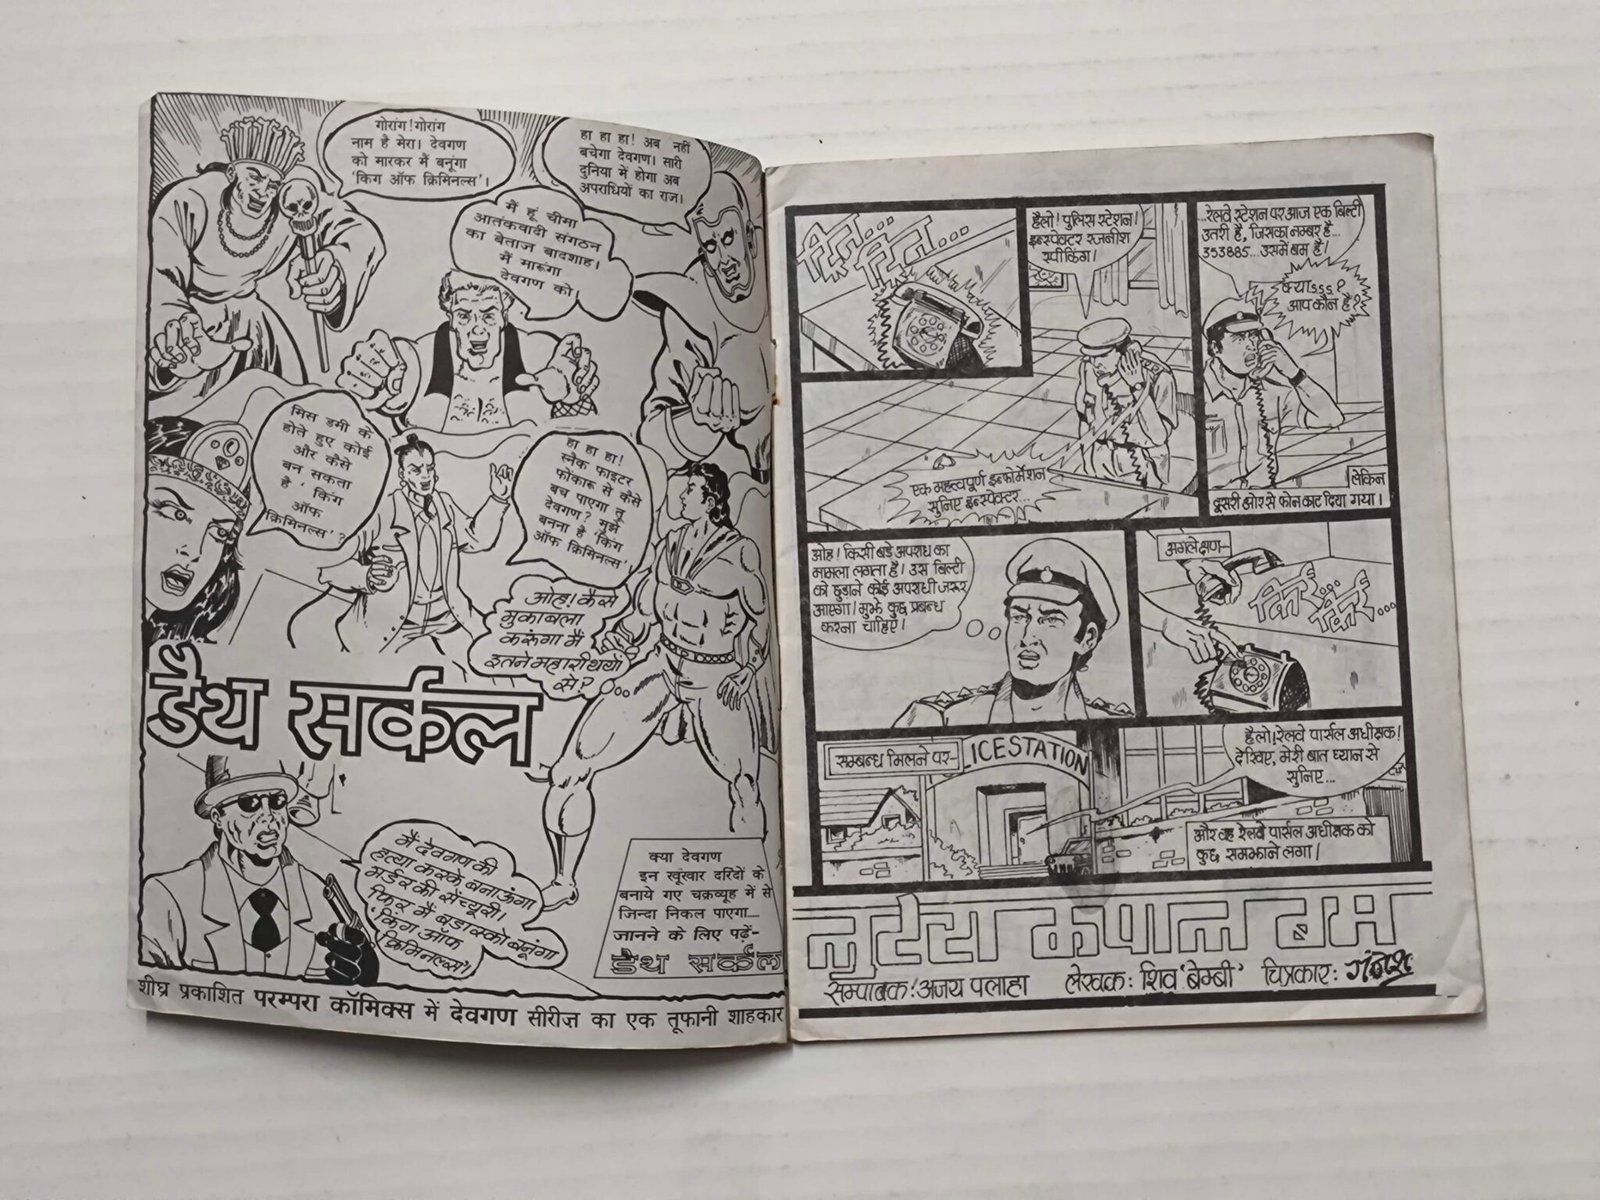 गोरांग! गोरांग
नाम है मेरा। देवगण
को मारकर मैं बनूंगा
'किंग ऑफ क्रिमिनल्स'।
हा हा हा! अब नहीं
बचेगा देवगण। सारी
दुनिया में होगा अब
अपराधियों का राज।
मैं हूं चीमा
आतंकवादी संगठन
का बेताज बादशाह।
मैं मारूंगा
देवगण को।
मिस डमी के
होते हुए कोई
और कैसे
बन सकता
है 'किंग
ऑफ
क्रिमिनल्स'?
हा हा हा!
स्नैक फाइटर
फोकारू से कैसे
बच पाएगा तू
देवगण? मुझे
बनना है 'किंग
ऑफ क्रिमिनल्स'
ओह! कैसे
मुकाबला
करूंगा मैं
इतने महारथियों
से?
डेथ सर्कल
मैं देवगण की
हत्या करके बनाऊंगा
मर्डर की सेंच्यूरी।
फिर मैं बड़ास्को बनूंगा
'किंग ऑफ
क्रिमिनल्स'।
क्या देवगण
इन खूंखार दरिंदों के
बनाये गए चक्रव्यूह में से
जिन्दा निकल पाएगा....
जानने के लिए पढ़ें-
डेथ सर्कल
शीघ्र प्रकाशित परम्परा कॉमिक्स में देवगण सीरीज़ का एक तूफानी शाहकार
ट्रिन...
ट्रिन...
हैलो! पुलिस स्टेशन!
इन्स्पेक्टर रजनीश
स्पीकिंग।
एक महत्वपूर्ण इन्फोर्मेशन
सुनिए इन्स्पेक्टर...
...रेलवे स्टेशन पर आज एक बिल्टी
उतरी है, जिसका नम्बर है...
353885... उसमें बम है।
क्याsss?
आप कौन हैं?
लेकिन
दूसरी ओर से फोन काट दिया गया।
ओह! किसी बड़े अपराध का
मामला लगता है। उस बिल्टी
को छुड़ाने कोई अपराधी जरूर
आएगा। मुझे कुछ प्रबन्ध
करना चाहिए।
अगले क्षण-
किर्र...
किर्र...
सम्बन्ध मिलने पर-
ICE STATION
हैलो! रेलवे पार्सल अधीक्षक!
देखिए, मेरी बात ध्यान से
सुनिए...
और वह रेलवे पार्सल अधीक्षक को
कुछ समझाने लगा।
लुटेरा कपाल बम
सम्पादक: अजय पलाहा लेखक: शिव 'बेम्बी' चित्रकार: